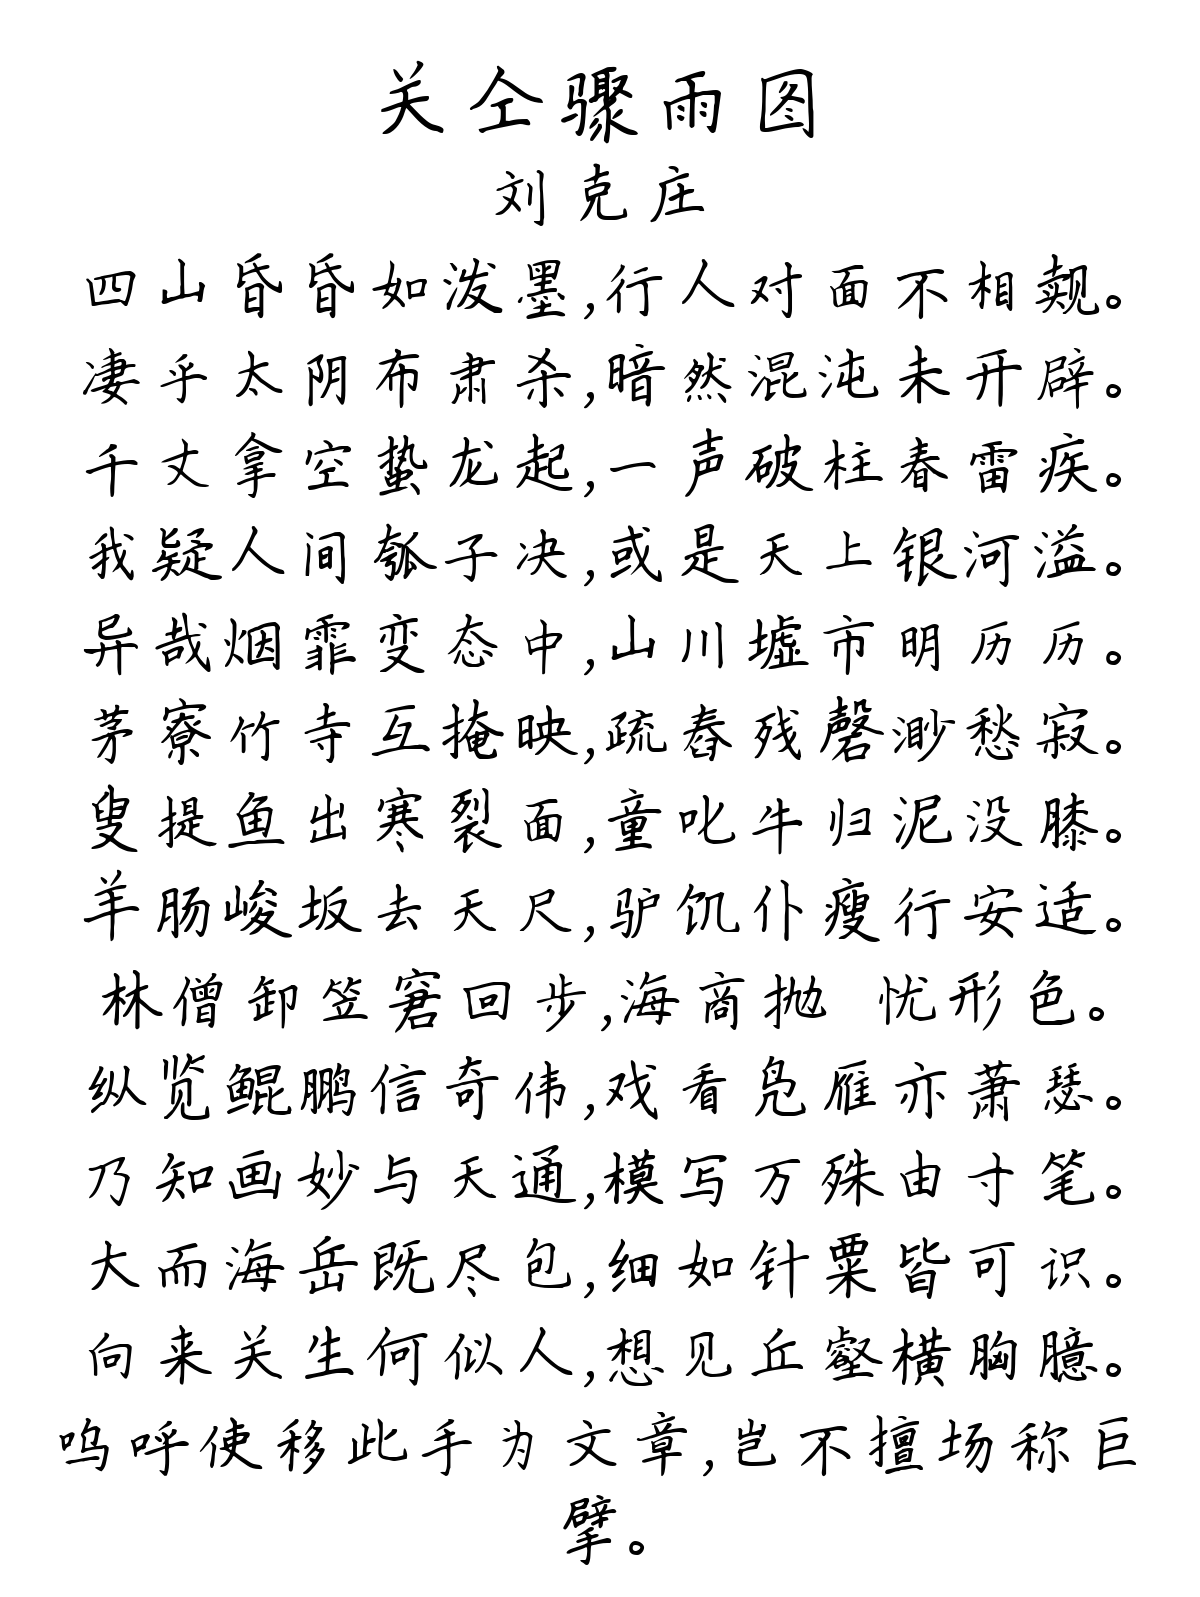 关仝骤雨图
刘克庄
四山昏昏如泼墨,行人对面不相觌。
凄乎太阴布肃杀,暗然混沌未开辟。
千丈拿空蛰龙起,一声破柱春雷疾。
我疑人间瓠子决,或是天上银河溢。
异哉烟霏变态中,山川墟市明历历。
茅寮竹寺互掩映,疏舂残磬渺愁寂。
叟提鱼出寒裂面,童叱牛归泥没膝。
羊肠峻坂去天尺,驴饥仆瘦行安适。
林僧卸笠窘回步,海商抛 忧形色。
纵览鲲鹏信奇伟,戏看凫雁亦萧瑟。
乃知画妙与天通,模写万殊由寸笔。
大而海岳既尽包,细如针粟皆可识。
向来关生何似人,想见丘壑横胸臆。
呜呼使移此手为文章,岂不擅场称巨
擘。